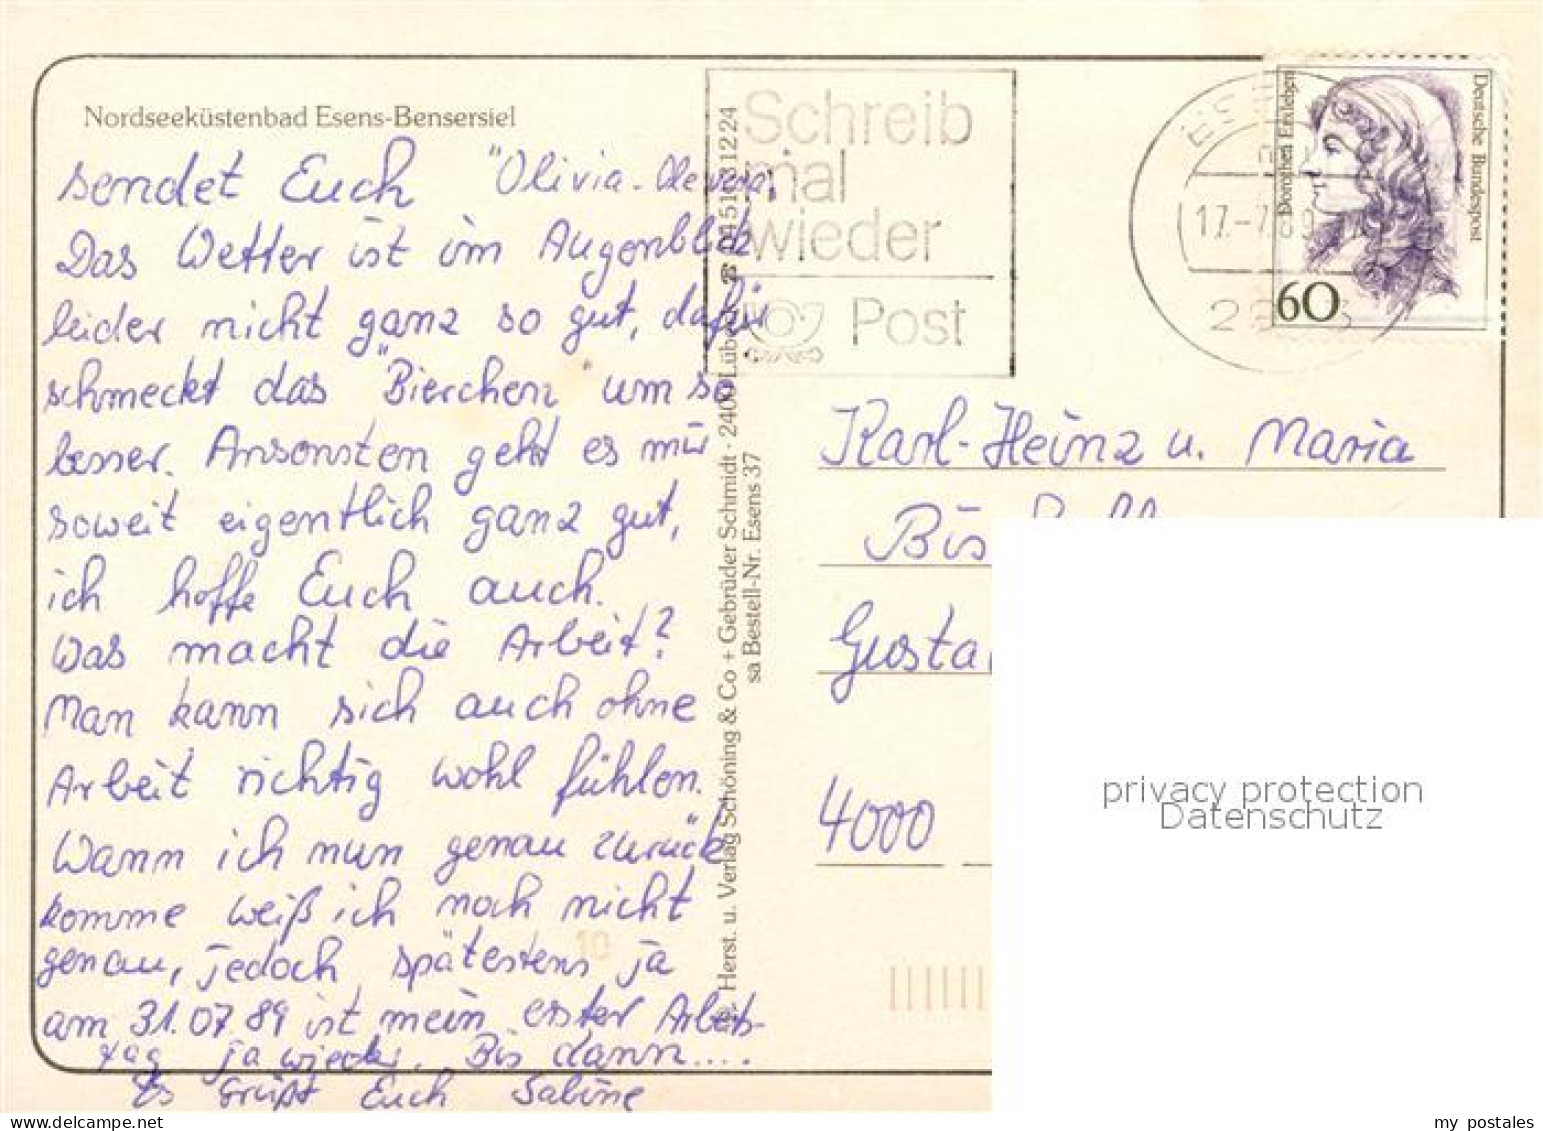 Nordseeküstenbad Esens-Bensersiel
sendet Euch "Olivia-
Das Wetter ist im Augenblick
leider nicht ganz so gut, dafür
schmeckt das "Bierchen" um so
besser. Ansonsten geht es mir
soweit eigentlich ganz gut,
ich hoffe Euch auch.
Was macht die Arbeit?
Man kann sich auch ohne
Arbeit richtig wohl fühlen.
Wann ich nun genau zurück
komme weiß ich noch nicht
genau, jedoch spätestens ja
am 31.07.89 ist mein erster Arbeits-
tag ja wieder. Bis dann....
Es Grüßt Euch Sabine
Herst. u. Verlag Schöning & Co + Gebrüder Schmidt · 2400 Lübeck
sa Bestell-Nr. Esens 37
Schreib
mal
wieder
Post
17.-7.89
Dorothea Erxleben
Deutsche Bundespost
60
Karl-Heinz u. Maria
Gusta
4000
10
privacy protection
Datenschutz
my postales